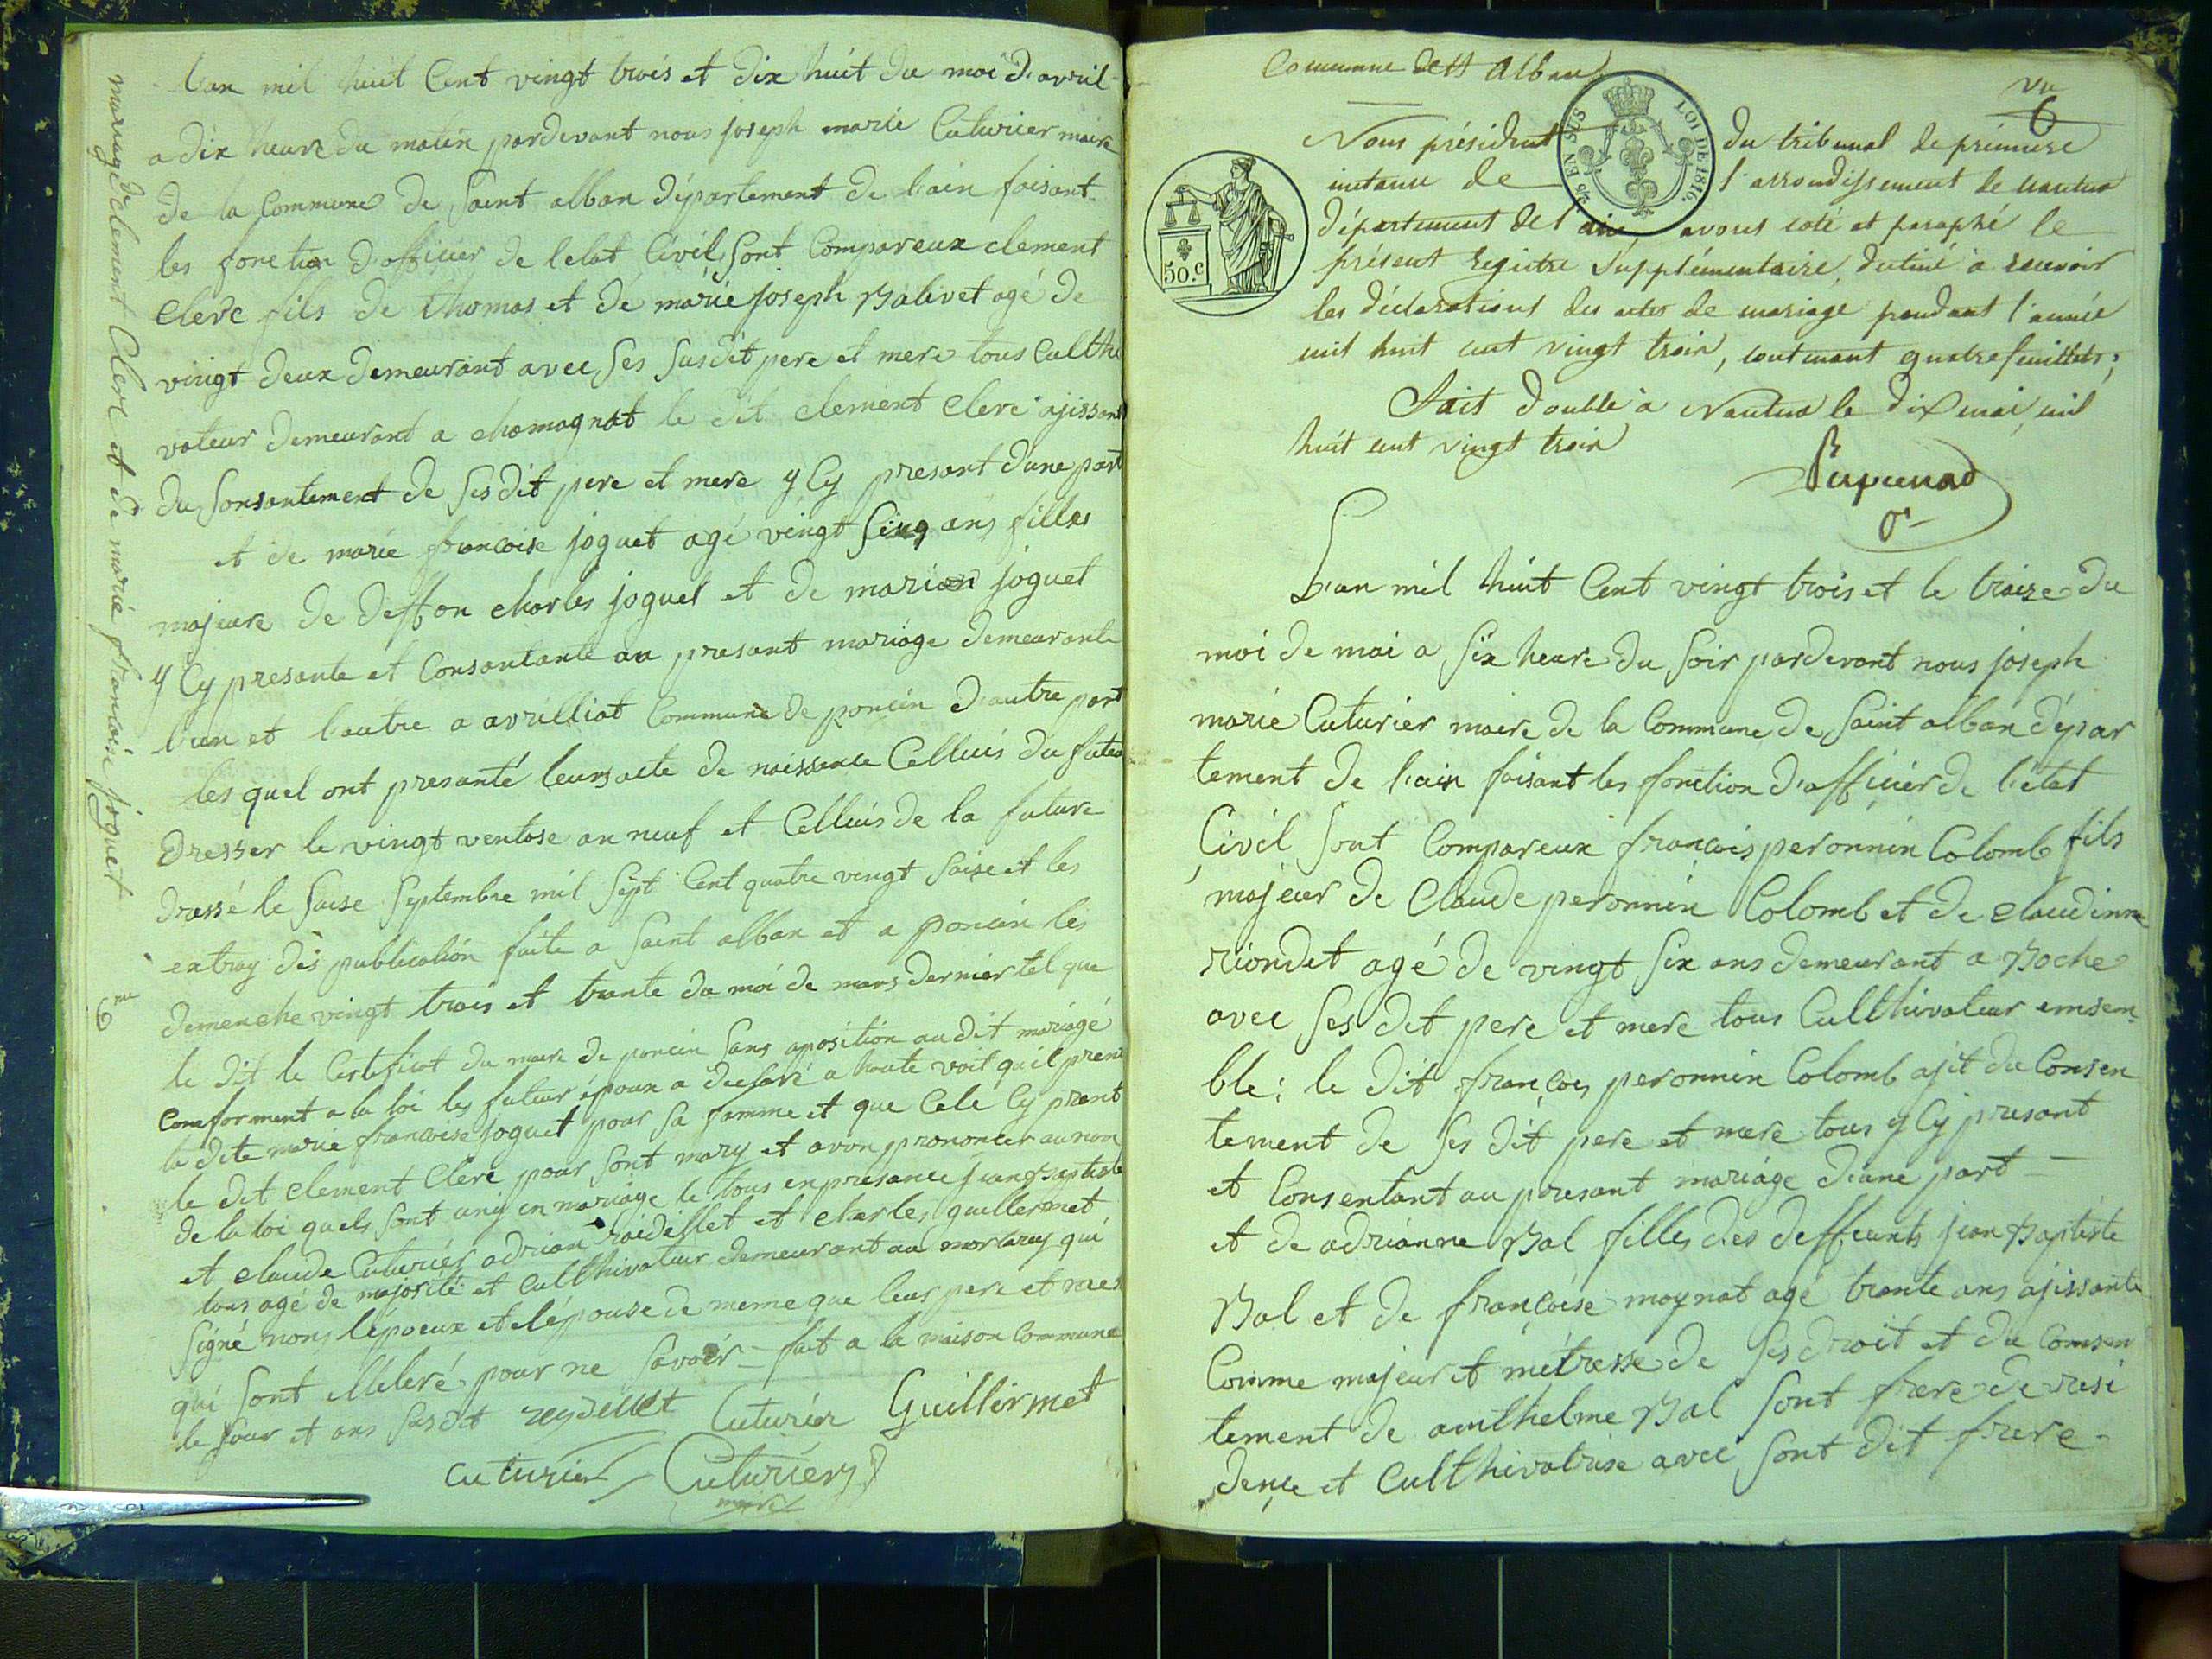 mariage de clement Clerc et de marie francoise joguet
6me
Lan mil huit Cent vingt trois et dix huit du moi d'avril
a dix heure du matin pardevant nous joseph marie Cuturier maire
de la Commune de Saint alban département de l'ain faisant
les fonction d'officier de letat Civil Sont Compareux clement
Clerc fils de thomas et de marie joseph Balivet agé de
vingt deux demeurant avec Ses Susdit pere et mere tous Culthi
vateur demeurant a chamagnat le dit clement clerc ajissant
du Consantement de Ses dit pere et mere y Cy present dune part
et de marie francoise joguet agé vingt Sinq ans filles
majeure de deffon charles joguet et de marian joguet
y Cy presante et Consantante au presant mariage demeurante
l'un et l'autre a avrilliat Commune de poncin d'autre part
les quel ont presanté leurs acte de naissence Celluis du futeur
dresser le vingt ventose an neuf et Celluis de la future
dressé le Saise Septembre mil Sept Cent quatre vingt Saise et les
extray des publication faite a Saint alban et a poncin les
demenche vingt trois et trante du moi de mars dernier tel que
le dit le Certificat du maire de poncin Sans aposition au dit mariage
Conformant a la loi les futeur époux a declaré a haute voit qu'il prent
la dite marie francoise joguet pour Sa famme et que Cele Cy prent
le dit clement Clerc pour Sont mary et avon prononcer au nom
de la loi quels Sont uniy en mariage le tous en presance jean Baptiste
et claude Cuturier adrian raidellet et charles guillermet
tous agé de majorité et Culthivateur demeurant au mortarey qui
Signé nons l'époeux et l'épouse de meme que leur pere et mer
qui Sont illeteré pour ne Savoir = fait a la maison Commune
le jour et ans Susdit reydellet Cuturier Guillermet
Cuturier Cuturiers
maire
Commune de St Alban
vu
6
2/5 EN SUS LOI DE 1816.
50.c
Nous président du tribunal de premiere
instance de l'arrondissement de nantua
département de l'ain avons coté et paraphé le
présent registre Supplémentaire, destiné a recevoir
les déclarations des actes de mariage pendant l'année
mil huit cent vingt trois, contenant quatre feuillets;
Fait double a Nantua le dix mai mil
huit cent vingt trois
L'an mil huit Cent vingt trois et le traize du
moi de mai a Six heure du Soir pardevant nous joseph
marie Cuturier maire de la Commune de Saint alban dépar
tement de l'ain faisant les fonction d'officier de l'etat
Civil Sont Compareux francois peronnin Colomb fils
majeur de Claude peronnin Colomb et de claudinne
riondet agé de vingt Six ans demeurant a Boche
avec Ses dit pere et mere tous Culthivateur emsem
ble: le dit françois peronnin Colomb ajit du Consen
tement de Ses dit pere et mere tous y Cy presant
et Consentant au presant mariage d'une part —
et de adrianne Bal filles des deffeunts jean Baptiste
Bal et de françoise moynat agé trante ans ajissante
Comme majeur et métresse de Ses droit et du Consen
tement de amthelme Bal Sont frere de resi
dence et Culthivatrise avec Sont dit frere